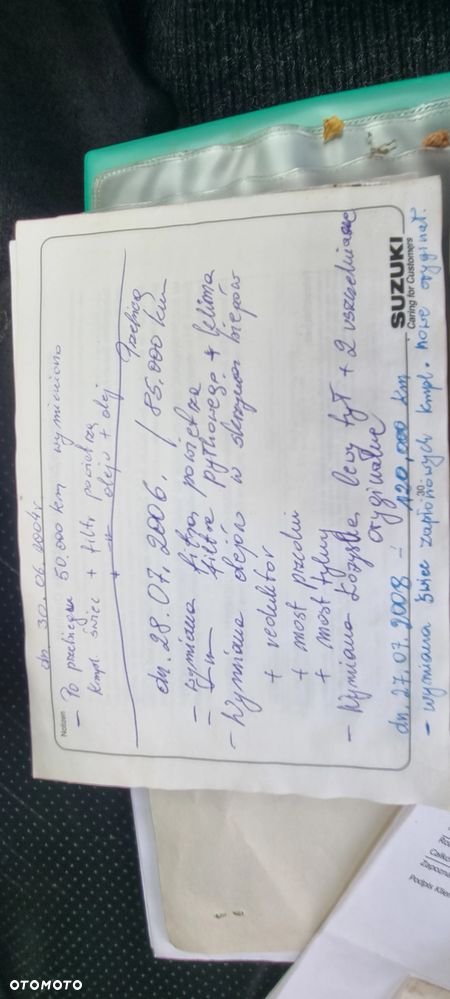 Notizen
dn. 30.06.2004r.
- Po przebiegu 50.000 km wymieniono
kmpl. świec + filtr powietrza
+ —"— oleju + olej
Przebieg
dn. 28.07.2006. / 85.000 km
- Wymiana filtra powietrza
- —"— filtra pyłkowego + klima
- Wymiana olejów w skrzyni biegów
+ reduktor
+ most przedni
+ most tylny
- Wymiana łożyska lewy tył + 2 uszczelniacze
oryginalne
30
SUZUKI
Caring for Customers
dn. 27.07.2008 - 120,000 km
- wymiana świec zapłonowych kmpl. nowe oryginał.
Podpis Klien
OTOMOTO